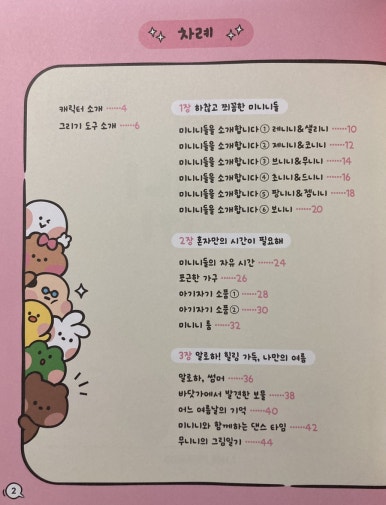 차례
캐릭터 소개 ······4
그리기 도구 소개 ······6
1장 하찮고 쬐끔한 미니니들
미니니들을 소개합니다① 레니니&샐리니 ······10
미니니들을 소개합니다② 제니니&코니니 ······12
미니니들을 소개합니다③ 브니니&무니니 ······14
미니니들을 소개합니다④ 초니니&드니니 ······16
미니니들을 소개합니다⑤ 팡니니&젬니니 ······18
미니니들을 소개합니다⑥ 보니니 ······20
2장 혼자만의 시간이 필요해
미니니들의 자유 시간 ······24
포근한 가구 ······26
아기자기 소품① ······28
아기자기 소품② ······30
미니니 룸 ······32
3장 알로하! 힐링 가득, 나만의 여름
알로하, 썸머 ······36
바닷가에서 발견한 보물 ······38
어느 여름날의 기억 ······40
미니니와 함께하는 댄스 타임 ······42
무니니의 그림일기 ······44
2